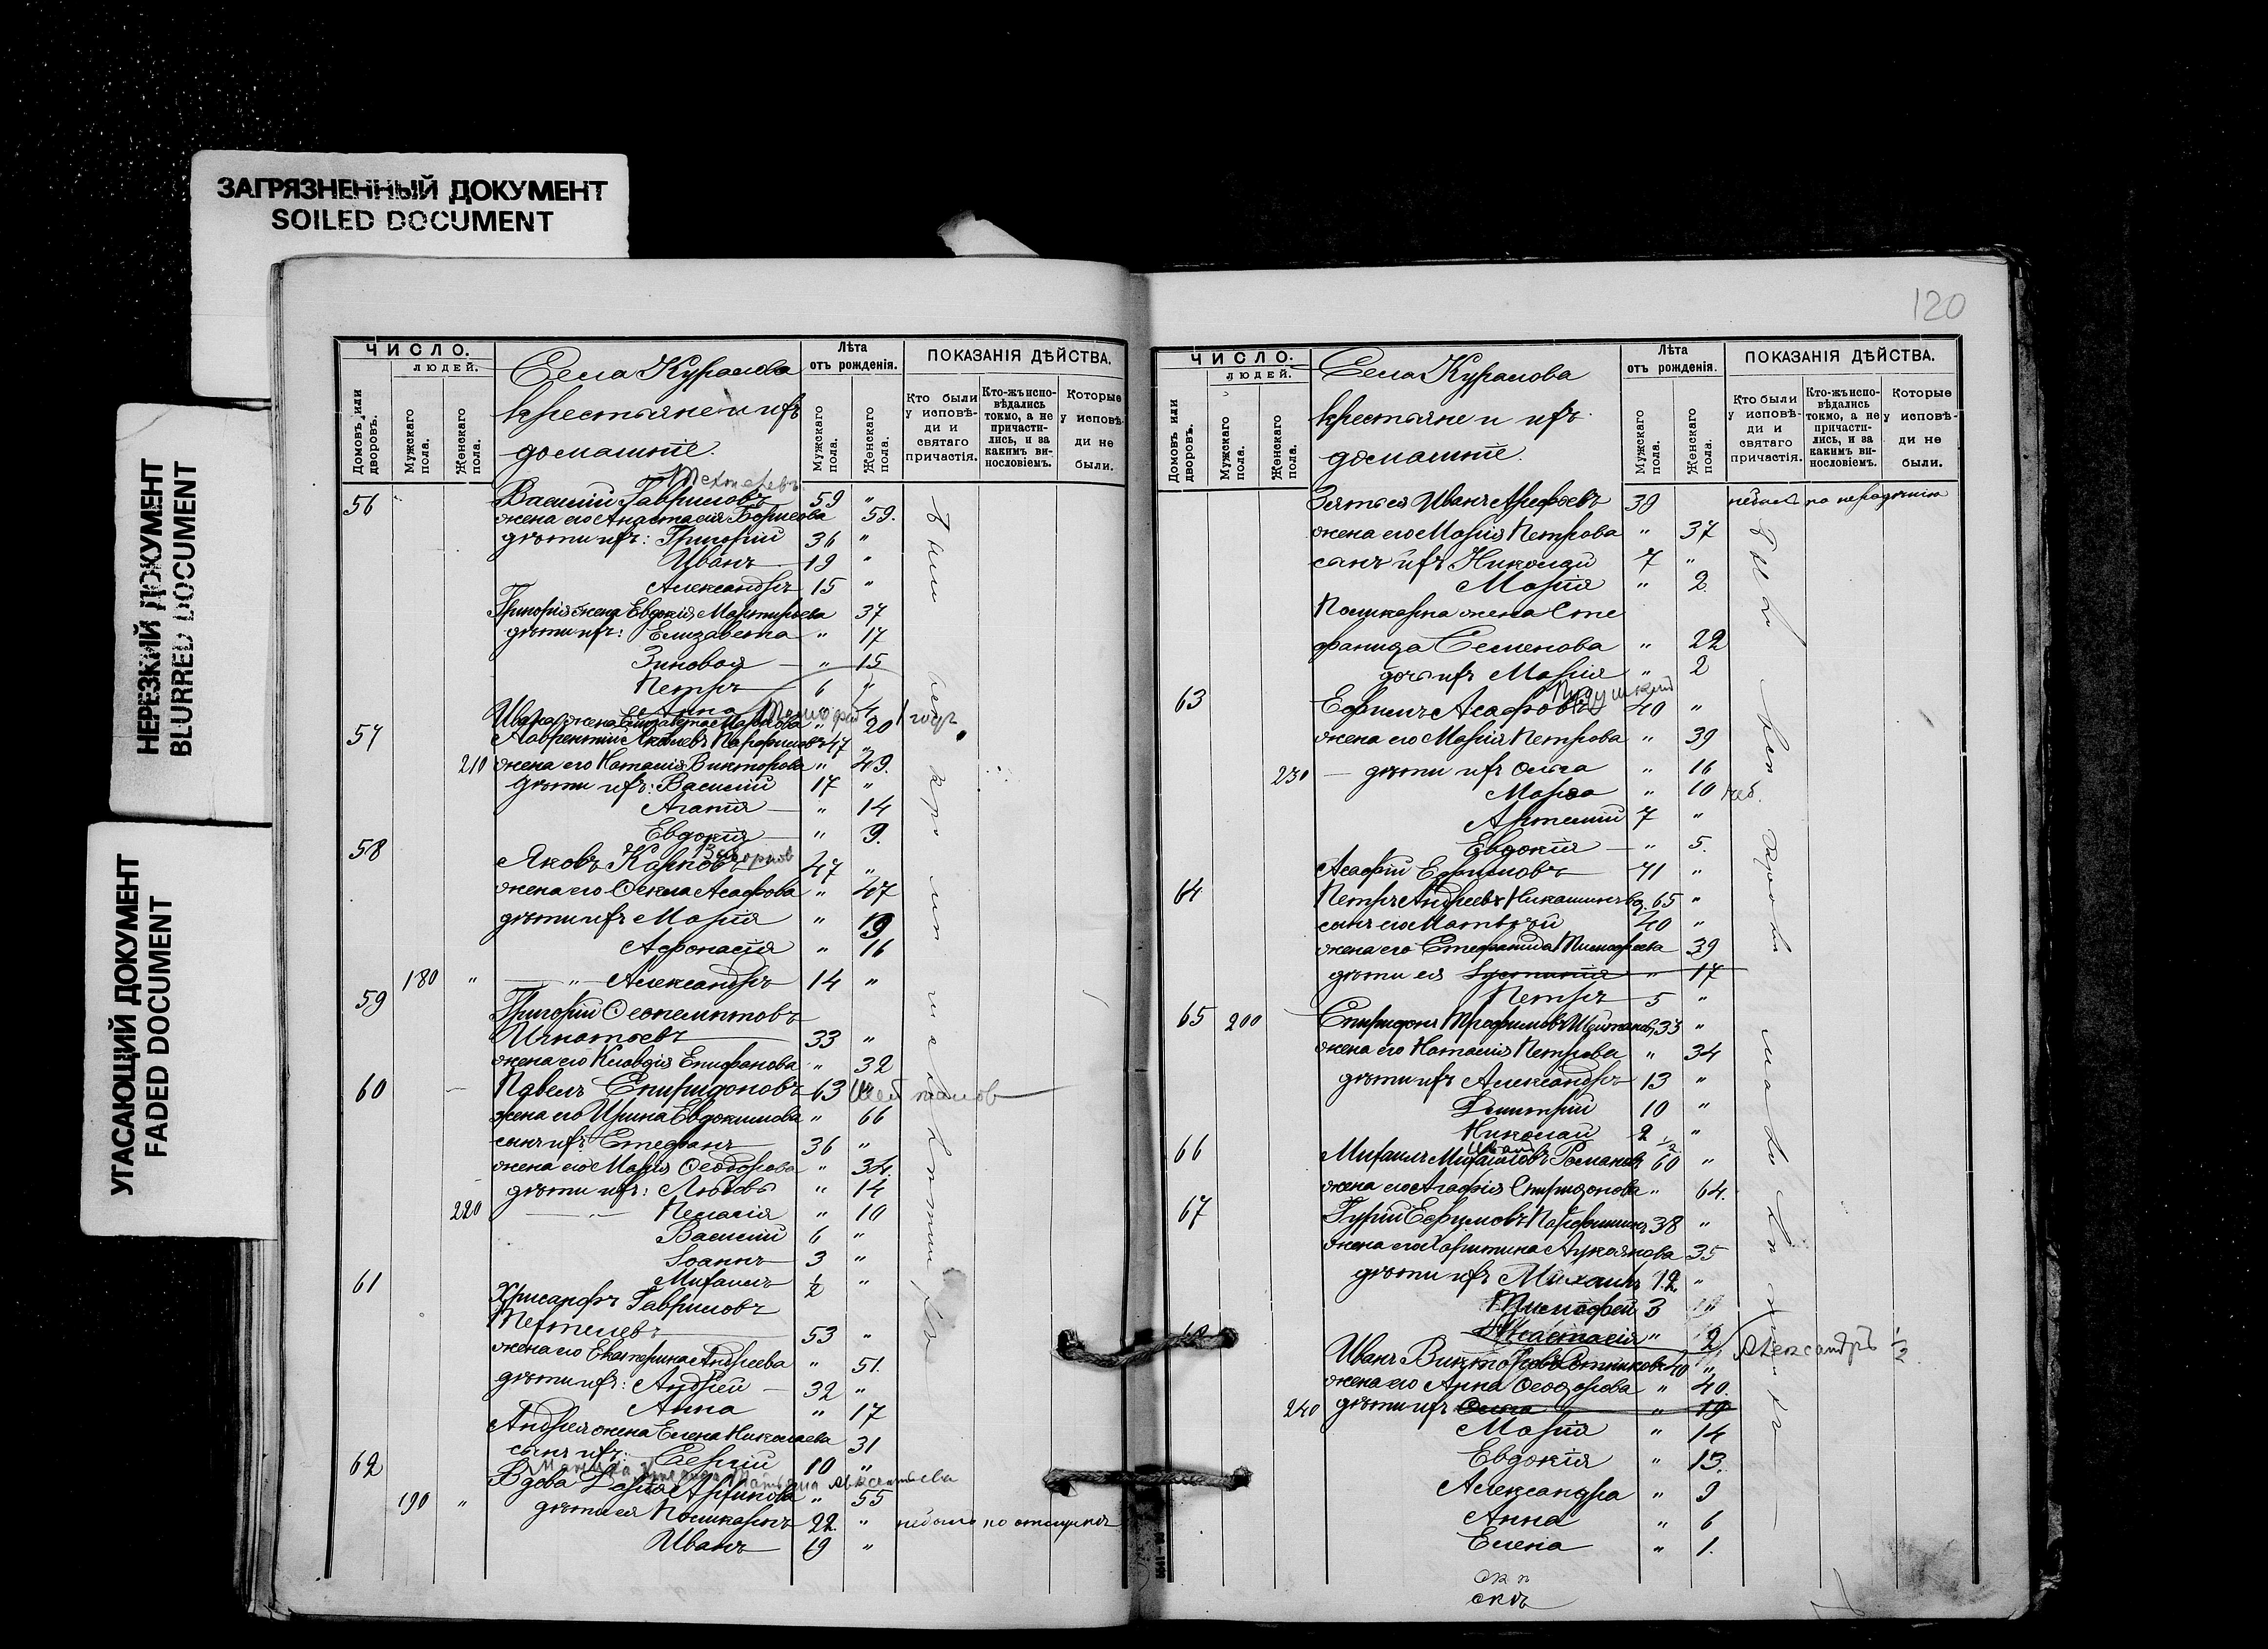 ЗАГРЯЗНЕННЫЙ ДОКУМЕНТ
SOILED DOCUMENT
НЕРЕЗКИЙ ДОКУМЕНТ
BLURRED DOCUMENT
УГАСАЮЩИЙ ДОКУМЕНТ
FADED DOCUMENT
ЧИСЛО.
ЛЮДЕЙ.
Домовъ или дворовъ.
Мужскаго пола.
Женскаго пола.
Села Куралова
крестьяне и ихъ
домашніе.
Лѣта
отъ рожденія.
Мужскаго пола.
Женскаго пола.
ПОКАЗАНІЯ ДѢЙСТВА.
Кто были у исповѣди и святаго причастія.
Кто-жъ исповѣдались токмо, а не причастились, и за какимъ винословіемъ.
Которые у исповѣди не были.
56 Василій Гавриловъ 59 "
жена его Анастасія Борисова " 59.
дѣти ихъ: Григорій 36 "
Иванъ 19 "
Александръ 15 "
Григорія жена Евдокія Мартирьева 37
дѣти ихъ: Елизавета " 17
Зиновія " 15
Петръ 6 "
Анна
Ивана жена Елизавета Маркова " 20
57 Лаврентій Яковлевъ 47 "
210 жена его Наталія Викторова " 49.
дѣти ихъ: Василій 17 "
Агапія " 14
Евдокія " 9.
58 Яковъ Карповъ 47 "
жена его Ѳекла Асафова " 47
дѣти ихъ Марія " 19
Афонасія " 16
180 " " Александръ 14 "
59 Григорій Ѳеопемптовъ
Игнатьевъ 33 "
жена его Клавдія Епифанова " 32
60 Павелъ Спиридоновъ 63
жена его Ирина Евдокимова " 66
сынъ ихъ Стефанъ 36 "
жена его Марія Ѳеодорова " 34.
дѣти ихъ: Любовь " 14
220 Пелагія " 10
Василій 6 "
Іоаннъ 3 "
Михаилъ 1/2 "
61 Хрисанфъ Гавриловъ
53 "
жена его Екатерина Андреева " 51.
дѣти ихъ: Андрей 32 "
Анна " 17
Андрея жена Елена Николаева 31
сынъ ихъ: Сергій 10 "
62 Вдова Дарія " 55
190 " дѣти ея Поликарпъ 22. " небылъ по отлучкѣ
Иванъ 19 "
120
ЧИСЛО.
ЛЮДЕЙ.
Домовъ или дворовъ.
Мужскаго пола.
Женскаго пола.
Села Куралова
крестьяне и ихъ
домашніе.
Лѣта
отъ рожденія.
Мужскаго пола.
Женскаго пола.
ПОКАЗАНІЯ ДѢЙСТВА.
Кто были у исповѣди и святаго причастія.
Кто-жъ исповѣдались токмо, а не причастились, и за какимъ винословіемъ.
Которые у исповѣди не были.
Зять ея Иванъ Арефьевъ 39 небылъ по нерадѣнію
жена его Марія Петрова " 37
сынъ ихъ Николай 7 "
Марія " 2
Поликарпа жена Сте
фанида Семенова " 22
дочь ихъ Марія " 2
63 Ефимъ Асафовъ 40 "
жена его Марія Петрова " 39
230 дѣти ихъ Ольга " 16
Марѳа " 10
Артемій 7 "
Евдокія " 5.
Асафій Ефимовъ 71 "
64 Петръ Андреевъ 65 "
сынъ его Матвѣй 40 "
жена его Стефанида Тимофеева 39
дѣти ея " 17
Петръ 5 "
65 200 Спиридонъ Трофимовъ 33 "
жена его Наталія Петрова " 34
дѣти ихъ Александръ 13 "
Димитрій 10 "
Николай 2 "
66 Михаилъ Романовъ 60 "
жена его Агафія Спиридонова " 64.
67 Гурій Ефимовъ 38 "
жена его Харитина Лукьянова 35
дѣти ихъ Михаилъ 12 "
Тимофей 3 "
Анастасія " 2
Александръ 1/2
Иванъ Викторовъ 40 "
жена его Анна Ѳеодорова " 40.
240 дѣти ихъ Ольга " 19
Марія " 14
Евдокія " 13.
Александра " 9
Анна " 6
Елена " 1.